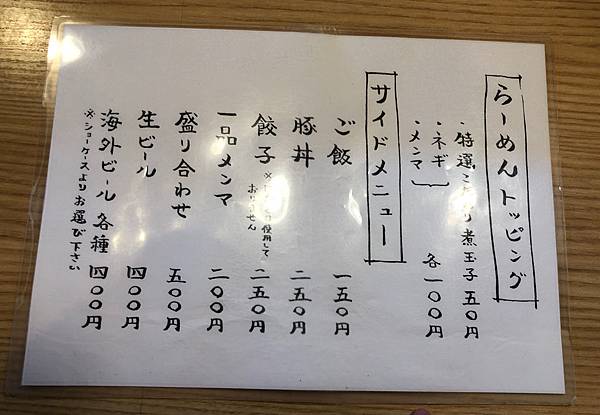 らーめんトッピング
・特選こ り煮玉子 五〇円
・ネギ
・メンマ 各一〇〇円
サイドメニュー
ご飯 一五〇円
豚丼 二五〇円
餃子 二五〇円
※ 使用して
おりません
一品メンマ 二〇〇円
盛り合わせ 五〇〇円
生ビール 四〇〇円
海外ビール 各種 四〇〇円
※ショーケースよりお選び下さい